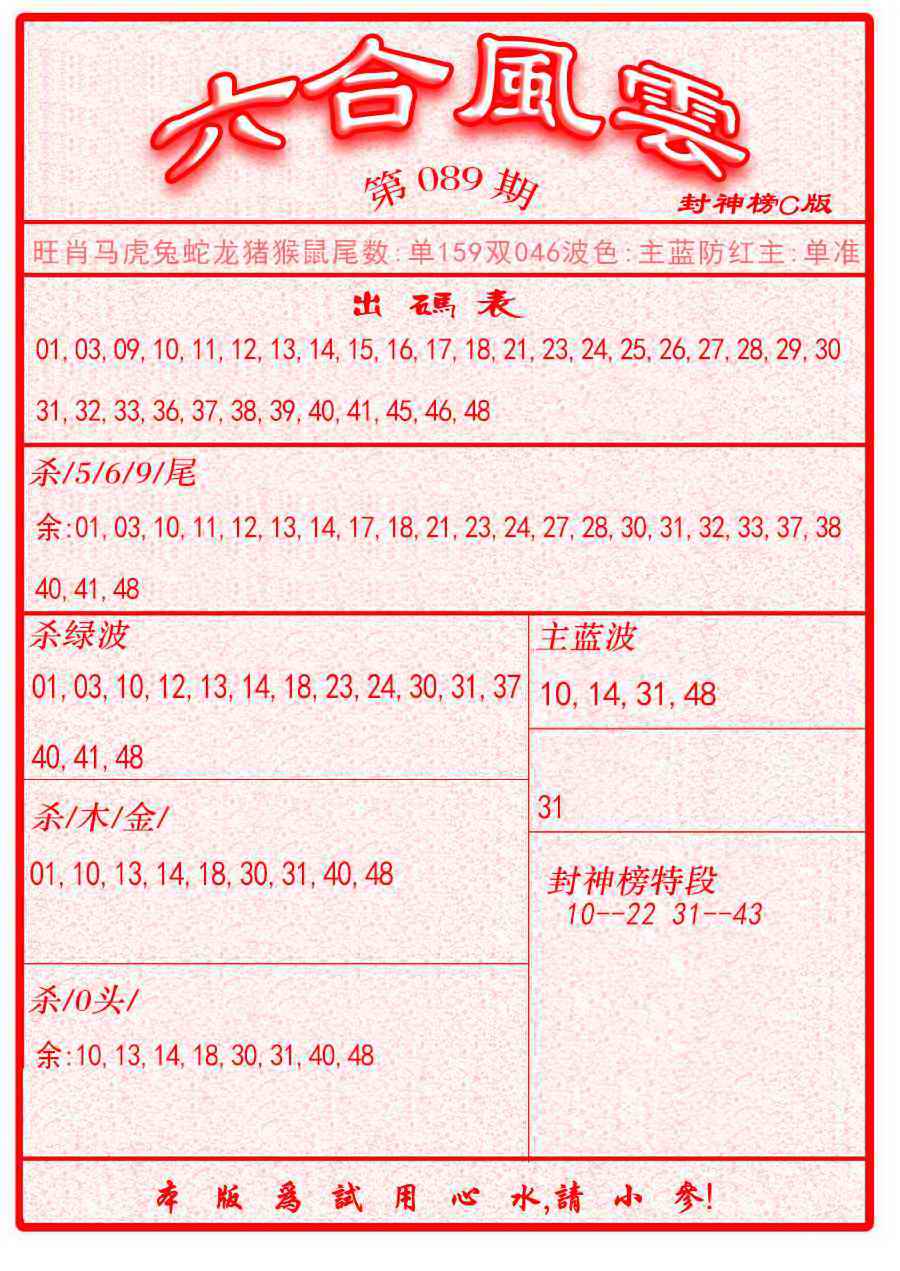 六合風雲
第 089 期
封神榜C版
旺肖马虎兔蛇龙猪猴鼠尾数:单159双046波色:主蓝防红主:单准
出碼表
01,03,09,10,11,12,13,14,15,16,17,18,21,23,24,25,26,27,28,29,30
31,32,33,36,37,38,39,40,41,45,46,48
杀/5/6/9/尾
余:01,03,10,11,12,13,14,17,18,21,23,24,27,28,30,31,32,33,37,38
40,41,48
杀绿波
01,03,10,12,13,14,18,23,24,30,31,37
40,41,48
主蓝波
10,14,31,48
31
杀/木/金/
01,10,13,14,18,30,31,40,48
封神榜特段
10--22 31--43
杀/0头/
余:10,13,14,18,30,31,40,48
本版爲試用心水,請小參!